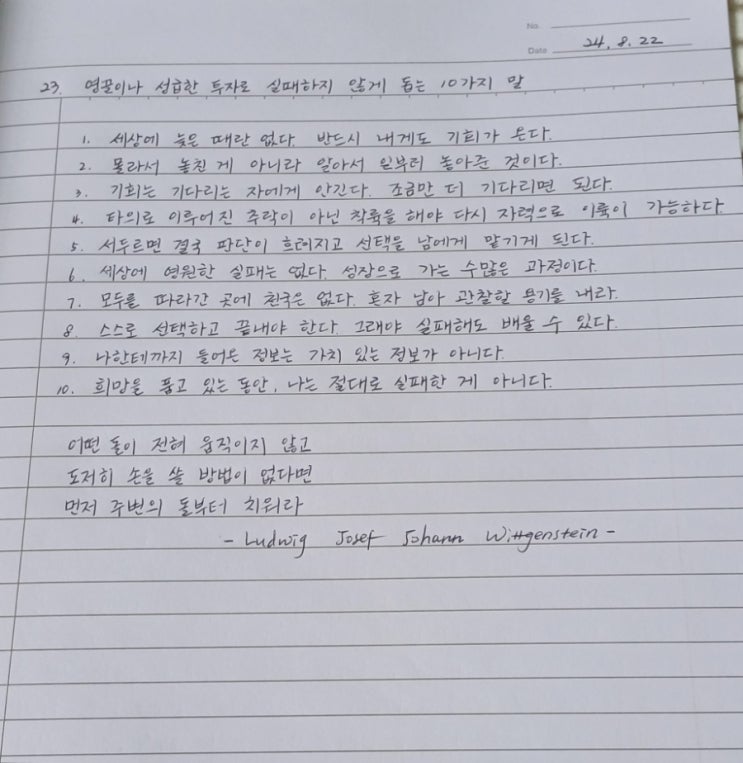 No.
Date 24. 8. 22
23. 영끌이나 성급한 투자로 실패하지 않게 돕는 10가지 말
1. 세상에 늦은 때란 없다. 반드시 내게도 기회가 온다.
2. 몰라서 놓친 게 아니라 알아서 일부러 놓아준 것이다.
3. 기회는 기다리는 자에게 안긴다. 조금만 더 기다리면 된다.
4. 타의로 이루어진 추락이 아닌 착륙을 해야 다시 자력으로 이륙이 가능하다.
5. 서두르면 결국 판단이 흐려지고 선택을 남에게 맡기게 된다.
6. 세상에 영원한 실패는 없다. 성장으로 가는 수많은 과정이다.
7. 모두를 따라간 곳에 천국은 없다. 혼자 남아 관찰할 용기를 내라.
8. 스스로 선택하고 끝내야 한다. 그래야 실패해도 배울 수 있다.
9. 나한테까지 들어온 정보는 가치 있는 정보가 아니다.
10. 희망을 품고 있는 동안, 나는 절대로 실패한 게 아니다.
어떤 돌이 전혀 움직이지 않고
도저히 손을 쓸 방법이 없다면
먼저 주변의 돌부터 치워라
- Ludwig Josef Johann Wittgenstein -